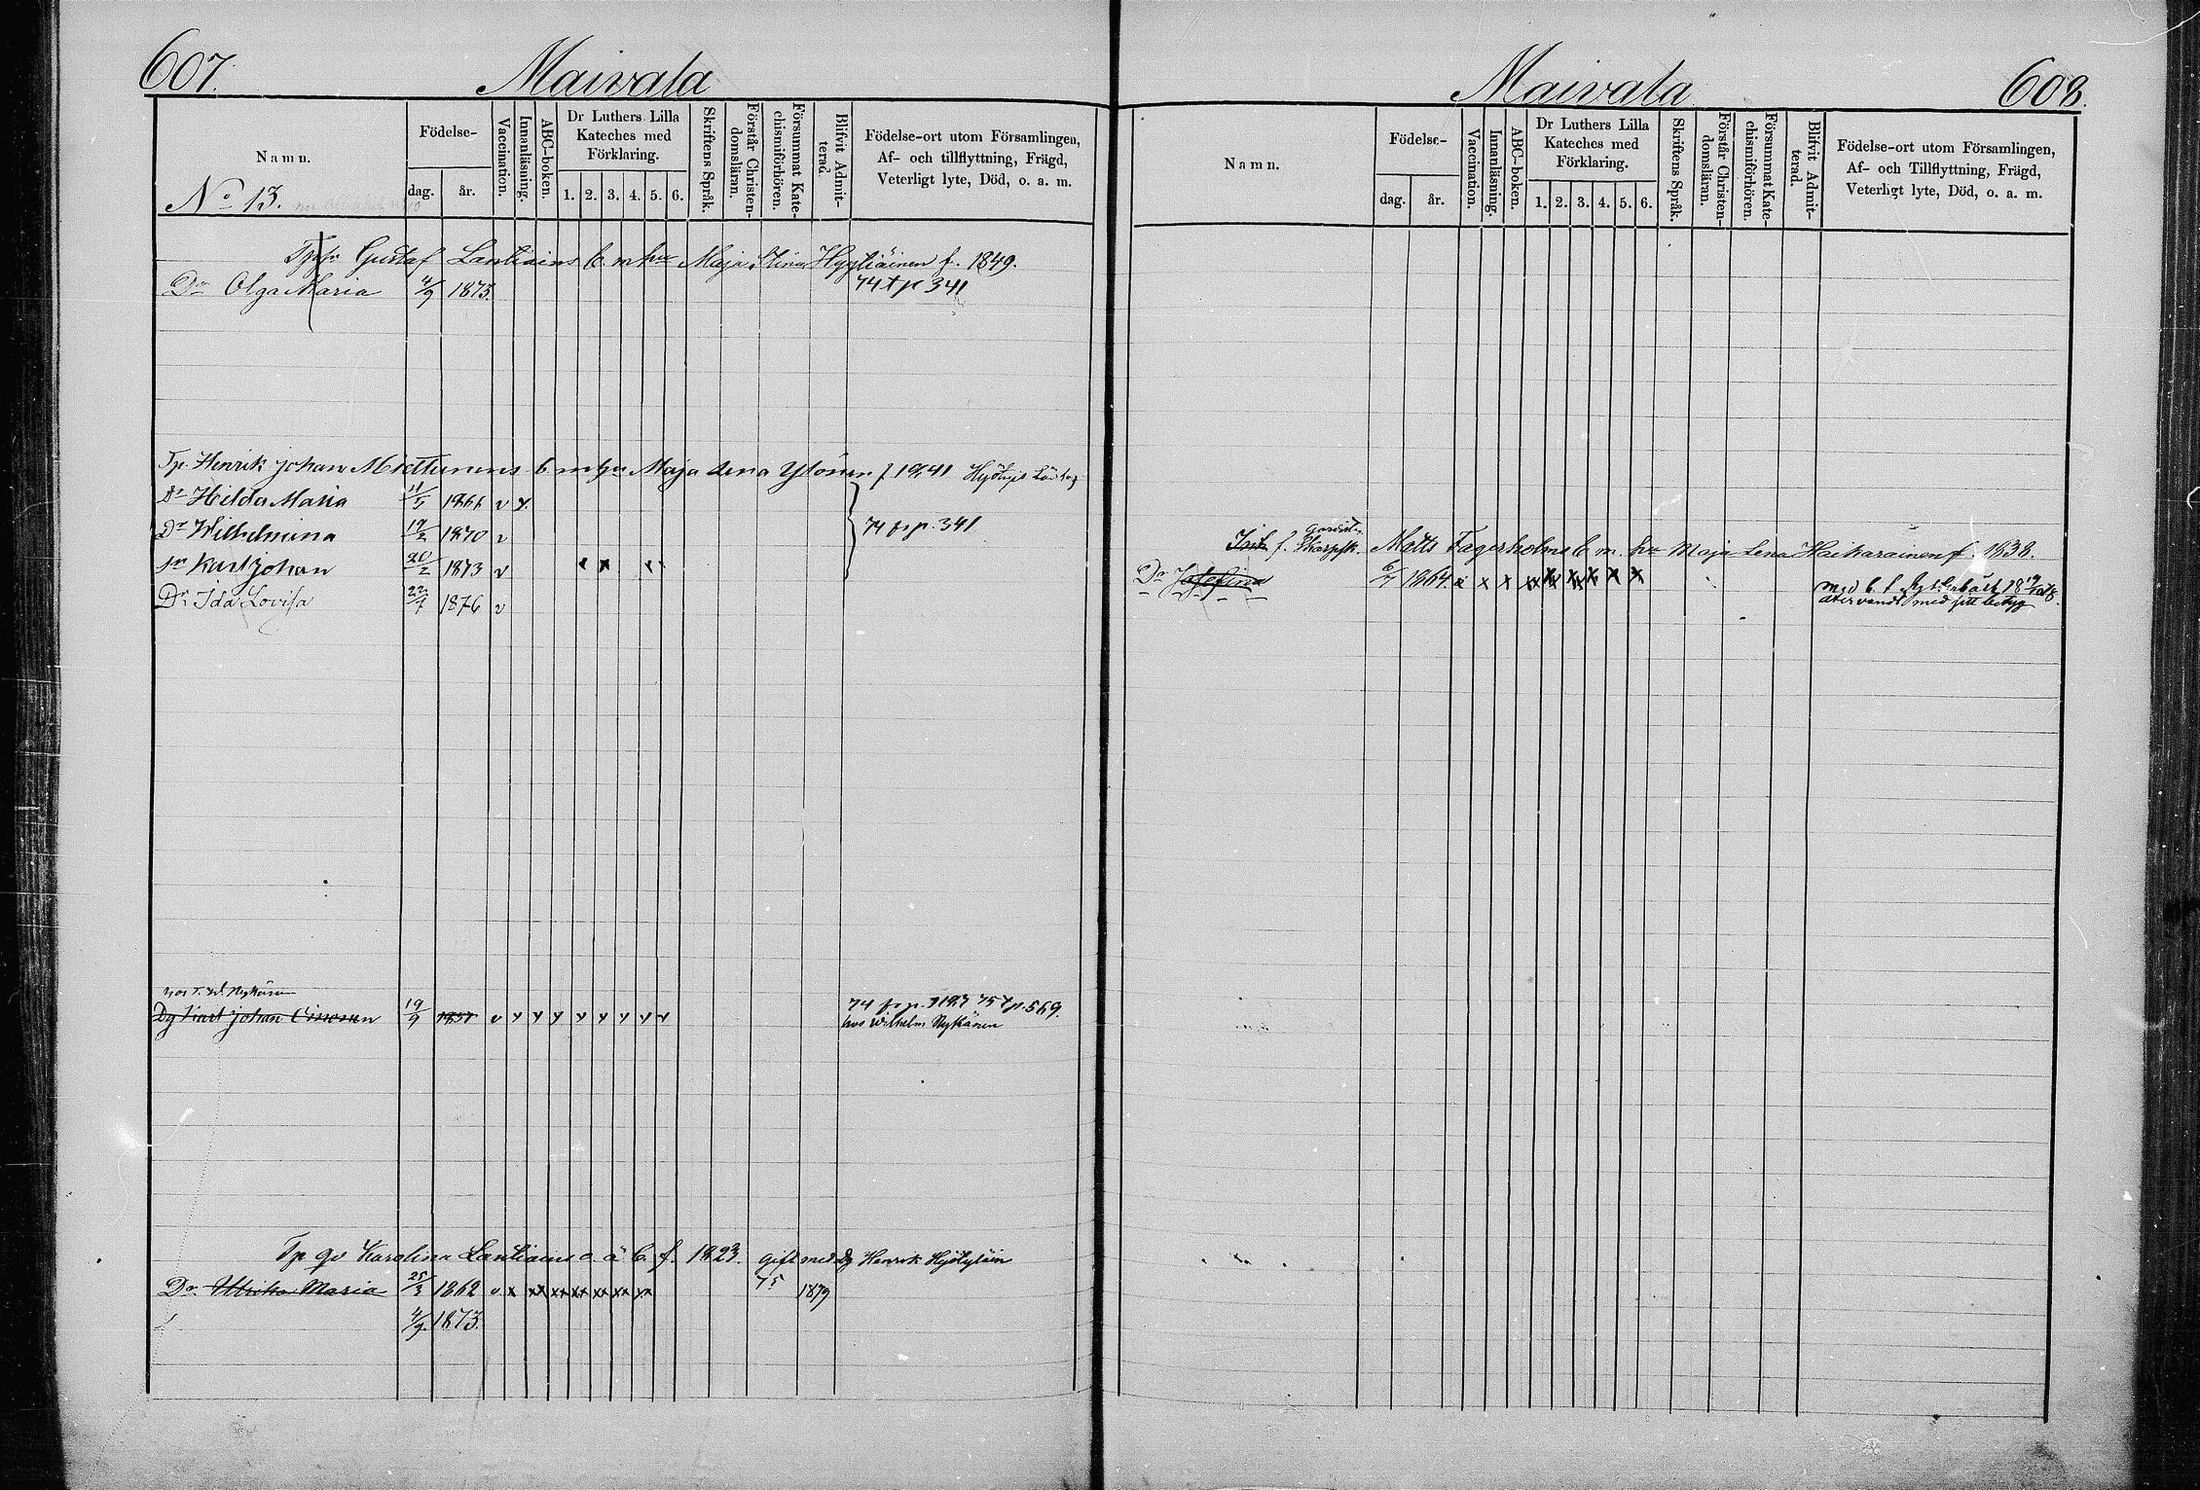 607.
Maivala
Namn.
Födelse-
dag.
år.
Vaccination.
Innanläsning.
ABC-boken.
Dr Luthers Lilla
Kateches med
Förklaring.
1. 2. 3. 4. 5. 6.
Skriftens Språk.
Förstår Christen-
domsläran.
Försummat Kate-
chismiförhören.
Blifvit Admit-
terad.
Födelse-ort utom Församlingen,
Af- och tillflyttning, Frägd,
Veterligt lyte, Död, o. a. m.
No 13.
Gustaf Lantiains b. m hu Maja Stina Hyytiäinen f. 1849.
Dr Olga Maria 4/9 1873. 74 t p 341
Tp. Henrik Johan Miettunens b m hu Maja Lena Ylönen f 1841
Dr Hilda Maria 11/5 1866 v y.
Dr Wilhelmina 19/2 1870 v 74 fr p. 341
Sn Karl Johan 20/2 1873 v
Dr Ida Lovisa 22/7 1876 v
hos T. W. Nykänen
Dg Karl Johan 19/9 1857 v y y y y y y y y 74 fr p. 75 t p. 569.
hos Wilhelm Nykänen
Tp qv Karolina Lantiains o. ä b. f. 1823. gift med Dg Henrik Hyötyläin
75
Dr Ulrika Maria 25/3 1862 v x xx xx xx xx xx xx 1879
4/9. 1873.
Maivala
608.
Namn.
Födelse-
dag.
år.
Vaccination.
Innanläsning.
ABC-boken.
Dr Luthers Lilla
Kateches med
Förklaring.
1. 2. 3. 4. 5. 6.
Skriftens Språk.
Förstår Christen-
domsläran.
Försummat Kate-
chismiförhören.
Blifvit Admit-
terad.
Födelse-ort utom Församlingen,
Af- och Tillflyttning, Frägd,
Veterligt lyte, Död, o. a. m.
f. Skarpsk. Matts Fagerholms b m. hu Maja Lena Haikarainen f. 1838.
Dr Josefina 6/7 1864.
återvandt med sitt betyg